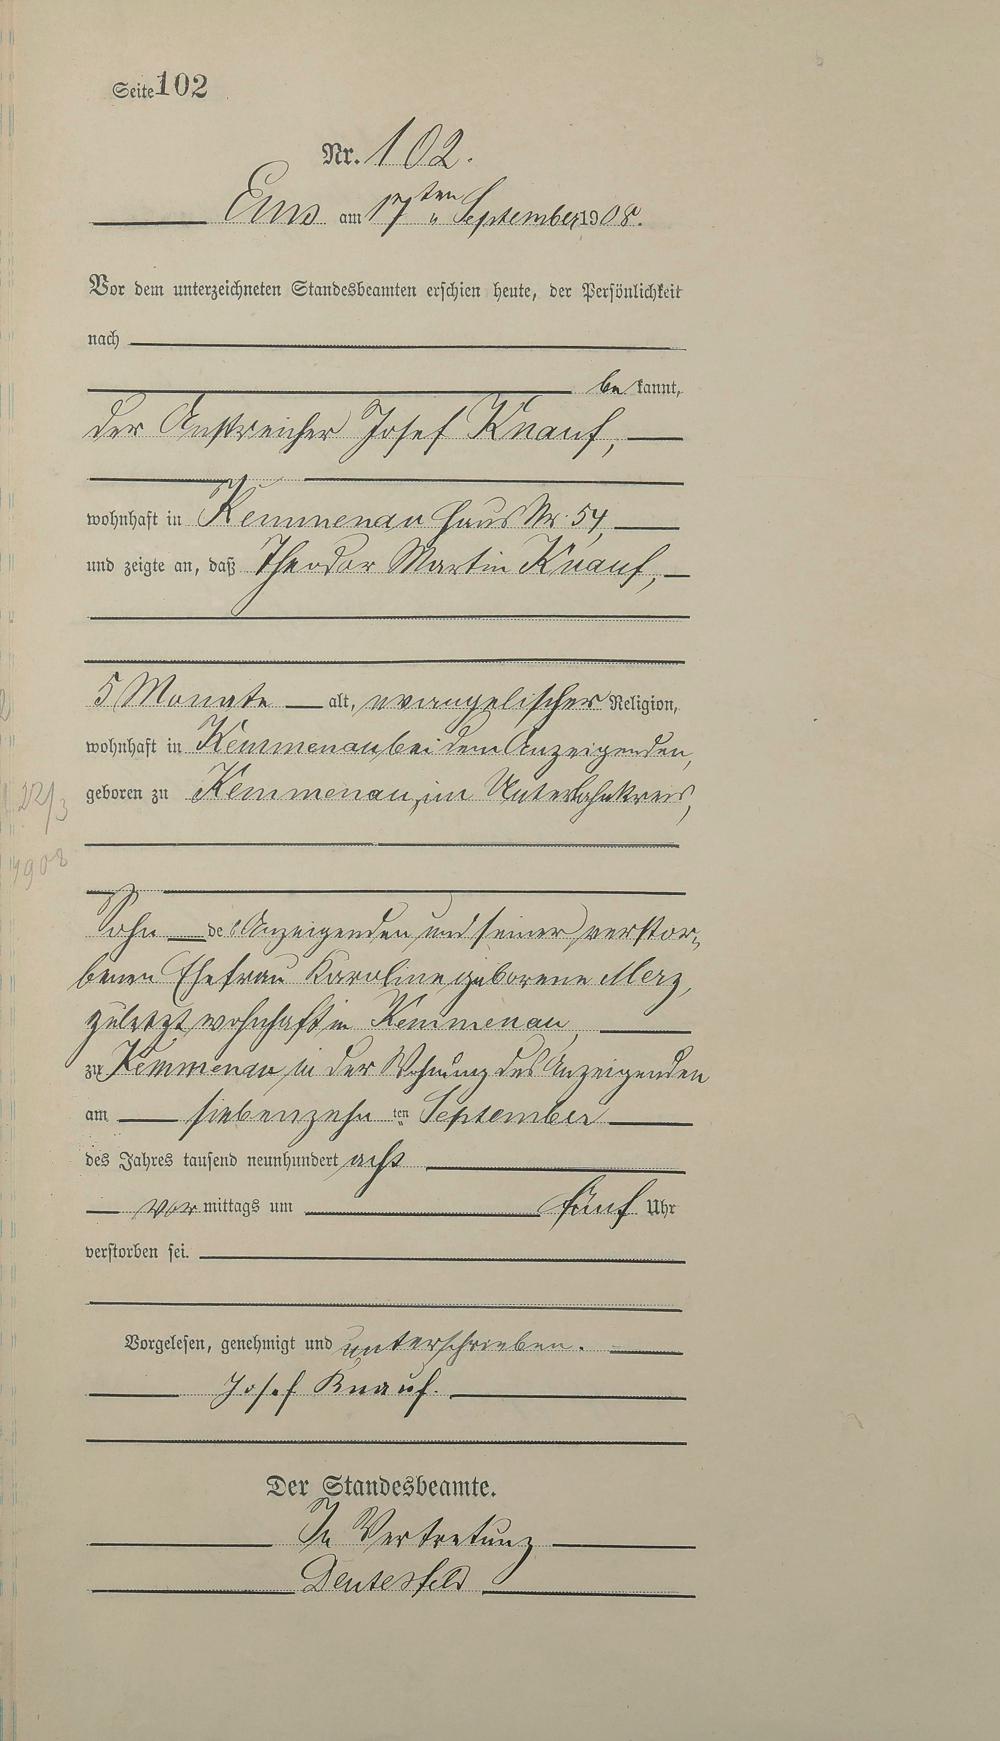 Seite 102
Nr. 102.
Ems am 17ten September 1908.
Vor dem unterzeichneten Standesbeamten erschien heute, der Persönlichkeit
nach
be kannt,
der Anstreicher Josef Knauf,
wohnhaft in Kemmenau Haus Nr. 54,
und zeigte an, daß Theodor Martin Knauf,
5 Monate alt, evangelischer Religion,
wohnhaft in Kemmenau bei dem Anzeigenden,
geboren zu Kemmenau, im Unterlahnkreis,
22/3
1908
Sohn des Anzeigenden und seiner verstor-
benen Ehefrau Karoline geborene Merz,
zuletzt wohnhaft in Kemmenau
zu Kemmenau in der Wohnung des Anzeigenden
am siebenzehn ten September
des Jahres tausend neunhundert acht
vor mittags um fünf Uhr
verstorben sei.
Vorgelesen, genehmigt und unterschrieben.
Josef Knauf.
Der Standesbeamte.
In Vertretung